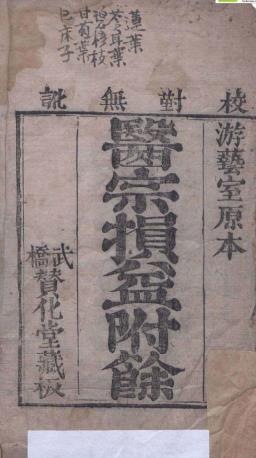 蓮葉
蒼耳葉
甘菊葉
校對無訛
游藝室原本
醫宗損益附餘
武橋贊化堂藏板